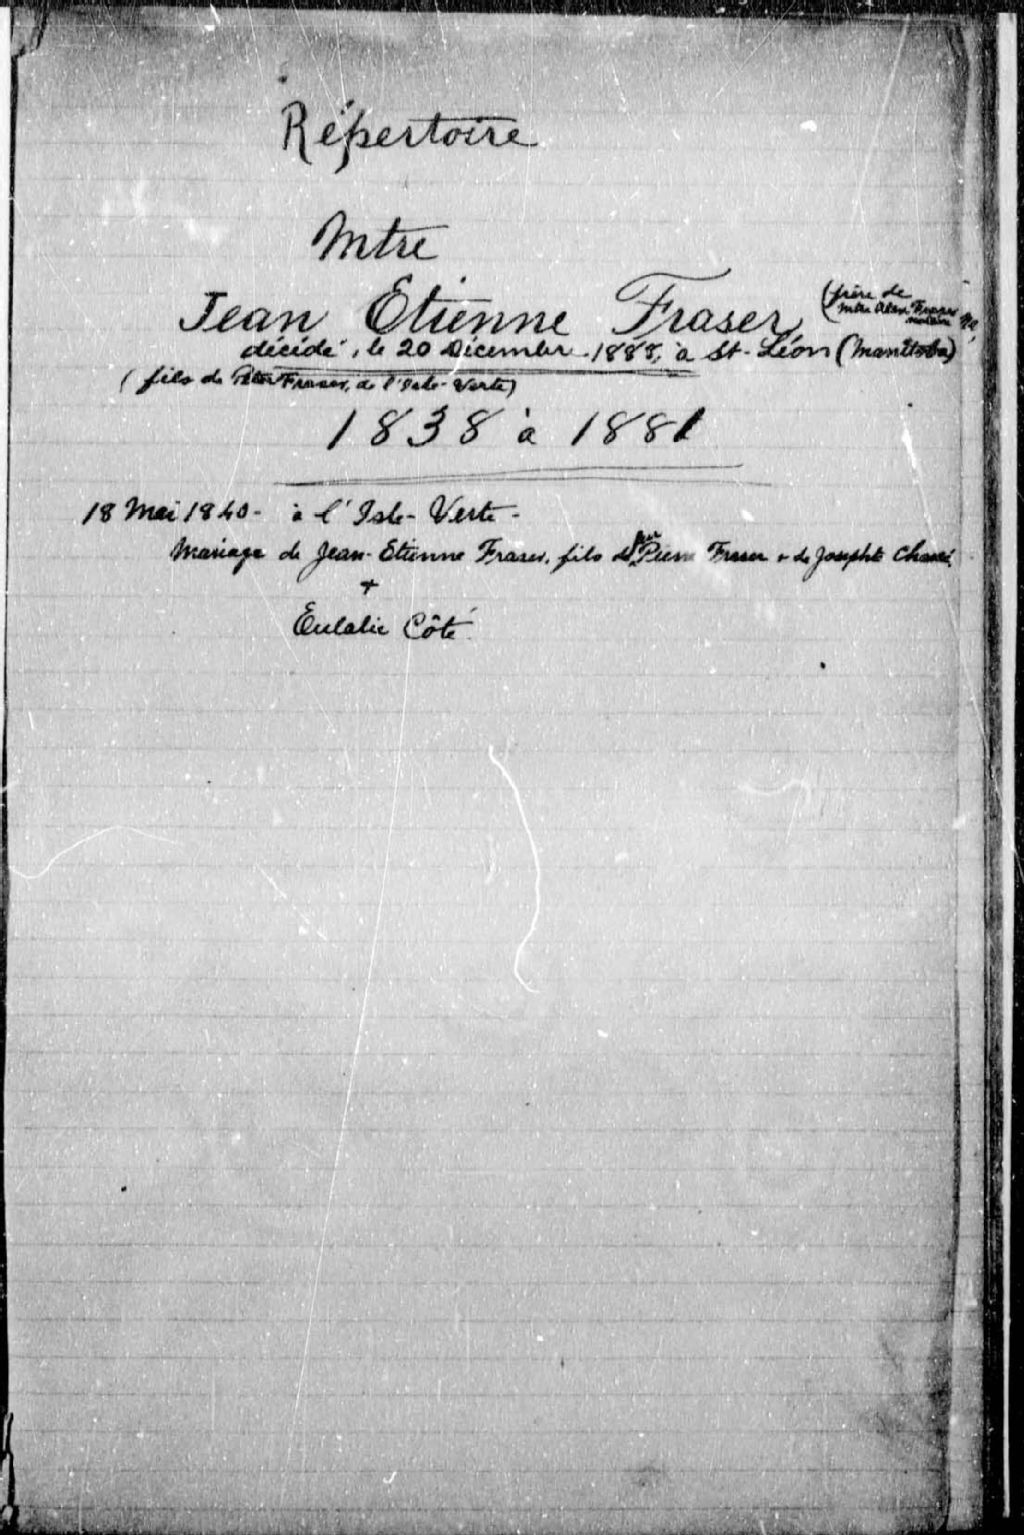 Répertoire
Mtre
Jean Etienne Fraser, (frère de
Mtre Alex. Fraser
notaire
décédé, le 20 Décembre 1888, à St-Léon (Manitoba)
(fils de Peter Fraser, de l'Isle-Verte)
1838 à 1881
18 Mai 1840 - à l'Isle-Verte -
Mariage de Jean-Etienne Fraser, fils de feu Pierre Fraser + de Josephte
+
Eulalie Côté